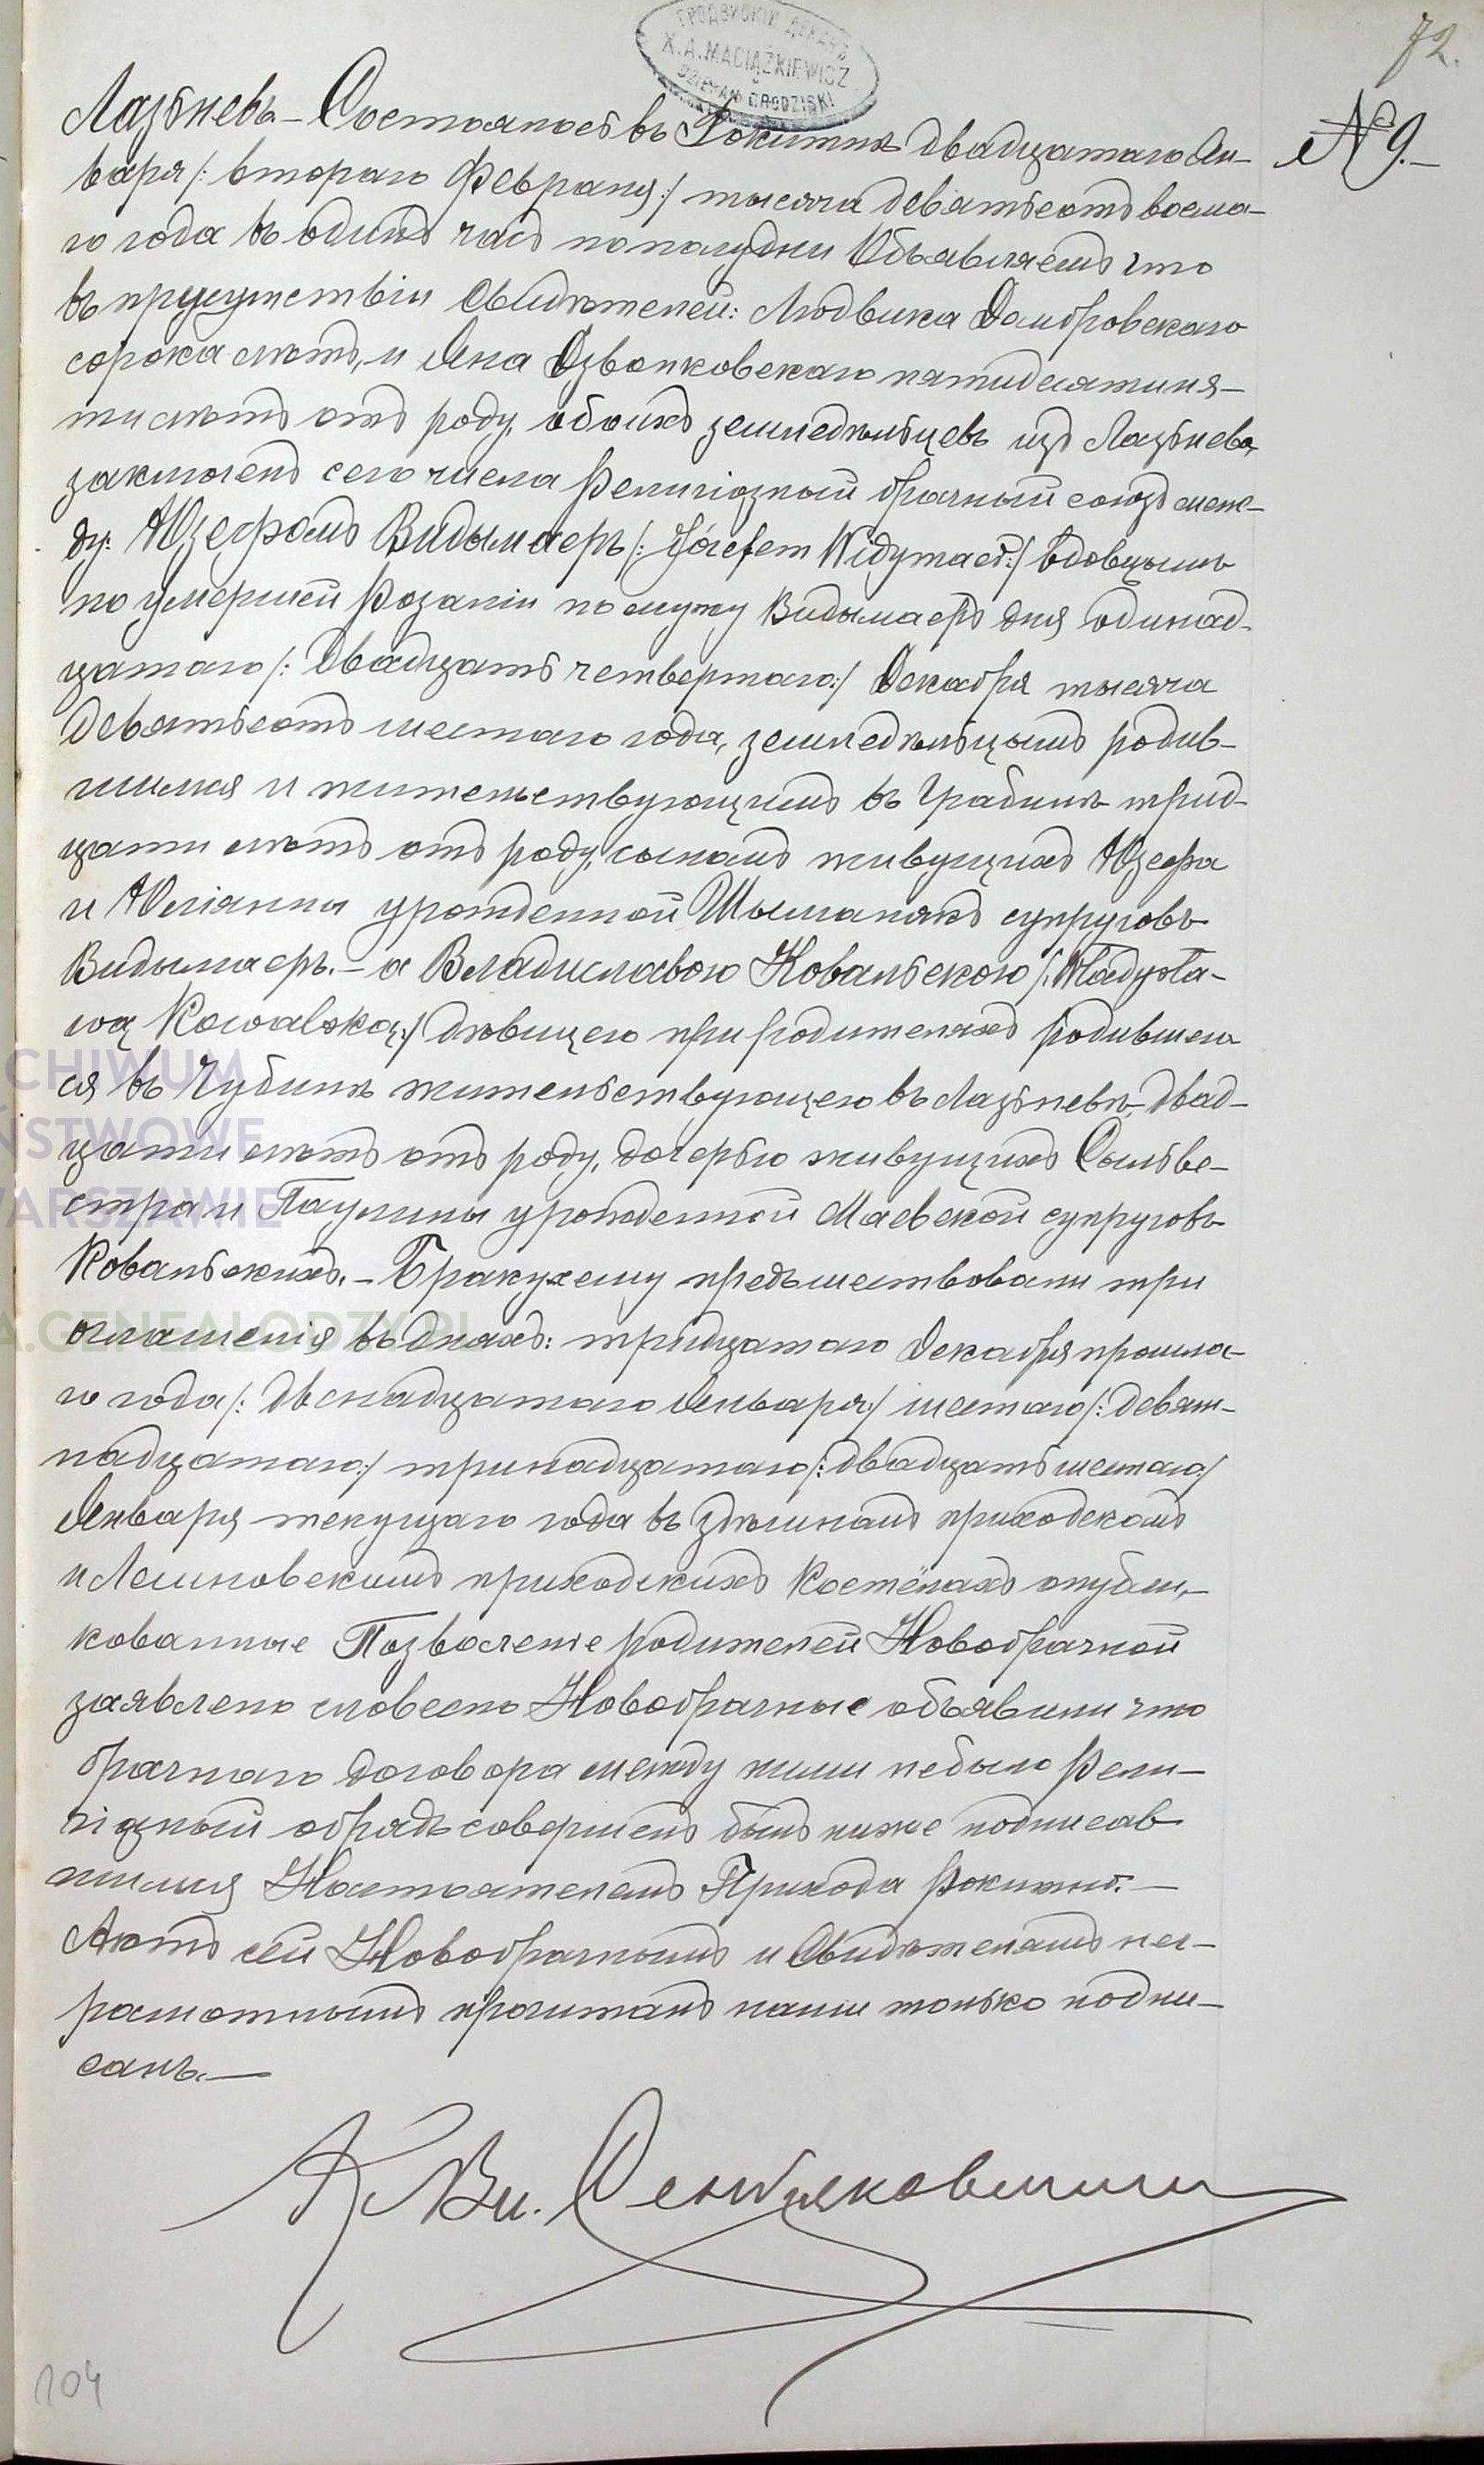 72.
ГРОДЗИСКІЙ ДЕКАНЪ
X.A.MACIĄŻKIEWICZ
DZIEKAN GRODZISKI
№ 9.—
Лазьневъ.— Состоялось въ Рокитнѣ двадцатаго Ян-
варя /: втораго Февраля :/ тысяча девятьсотъ восьма-
го года въ одинъ часъ пополудни Объявляемъ что
въ присутствіи Свидѣтелей: Людвика Домбровскаго
сорока лѣтъ, и Яна Дзвонковскаго пятидесятипя-
ти лѣтъ отъ роду, обоихъ земледѣльцевъ изъ Лазьнева,
заключенъ сего числа Религіозный брачный союзъ меж-
ду: Юзефомъ Видымаеръ /: Józefem Widymaer :/ вдовцомъ
по умершей Розаліи по мужу Видымаеръ дня одинад-
цатаго /: двадцать четвертаго :/ Декабря тысяча
девятьсотъ шестаго года, земледѣльцомъ родив-
шимся и жительствующимъ въ Грабинѣ трид-
цати лѣтъ отъ роду, сыномъ живущихъ Юзефа
и Юліанны урожденной Шыманякъ супруговъ
Видымаеръ.— а Владиславою Ковальскою /: Władysła-
wą Kowalską :/ дѣвицею при родителяхъ родившею
ся въ Чубинѣ жительствующею въ Лазьневѣ, двад-
цати лѣтъ отъ роду, дочерью живущихъ Сыльве-
стра и Паулины урожденной Маевской супруговъ
Ковальскихъ.— Браку сему предшествовали три
оглашенія въ дняхъ: тридцатаго Декабря прошла-
го года /: двенадцатаго Января :/ шестаго /: девят-
надцатаго :/ тринадцатаго /: двадцать шестаго :/
Января текущаго года въ здѣшномъ приходскомъ
и Лешновскимъ приходскихъ Костёлахъ опубли-
кованные Позволеніе родителей Новобрачной
заявлено словесно Новобрачные объявили что
брачнаго договора между ними небыло Рели-
гіозный обрядъ совершенъ былъ ниже подписав-
шимся Настоятелемъ Прихода Рокитно.—
Актъ сей Новобрачнымъ и Свидѣтелямъ нег-
рамотнымъ прочитанъ нами только подпи-
санъ.—
К Вл.
104
ARCHIWUM
PAŃSTWOWE
WARSZAWIE
A.GENEALODZY.PL